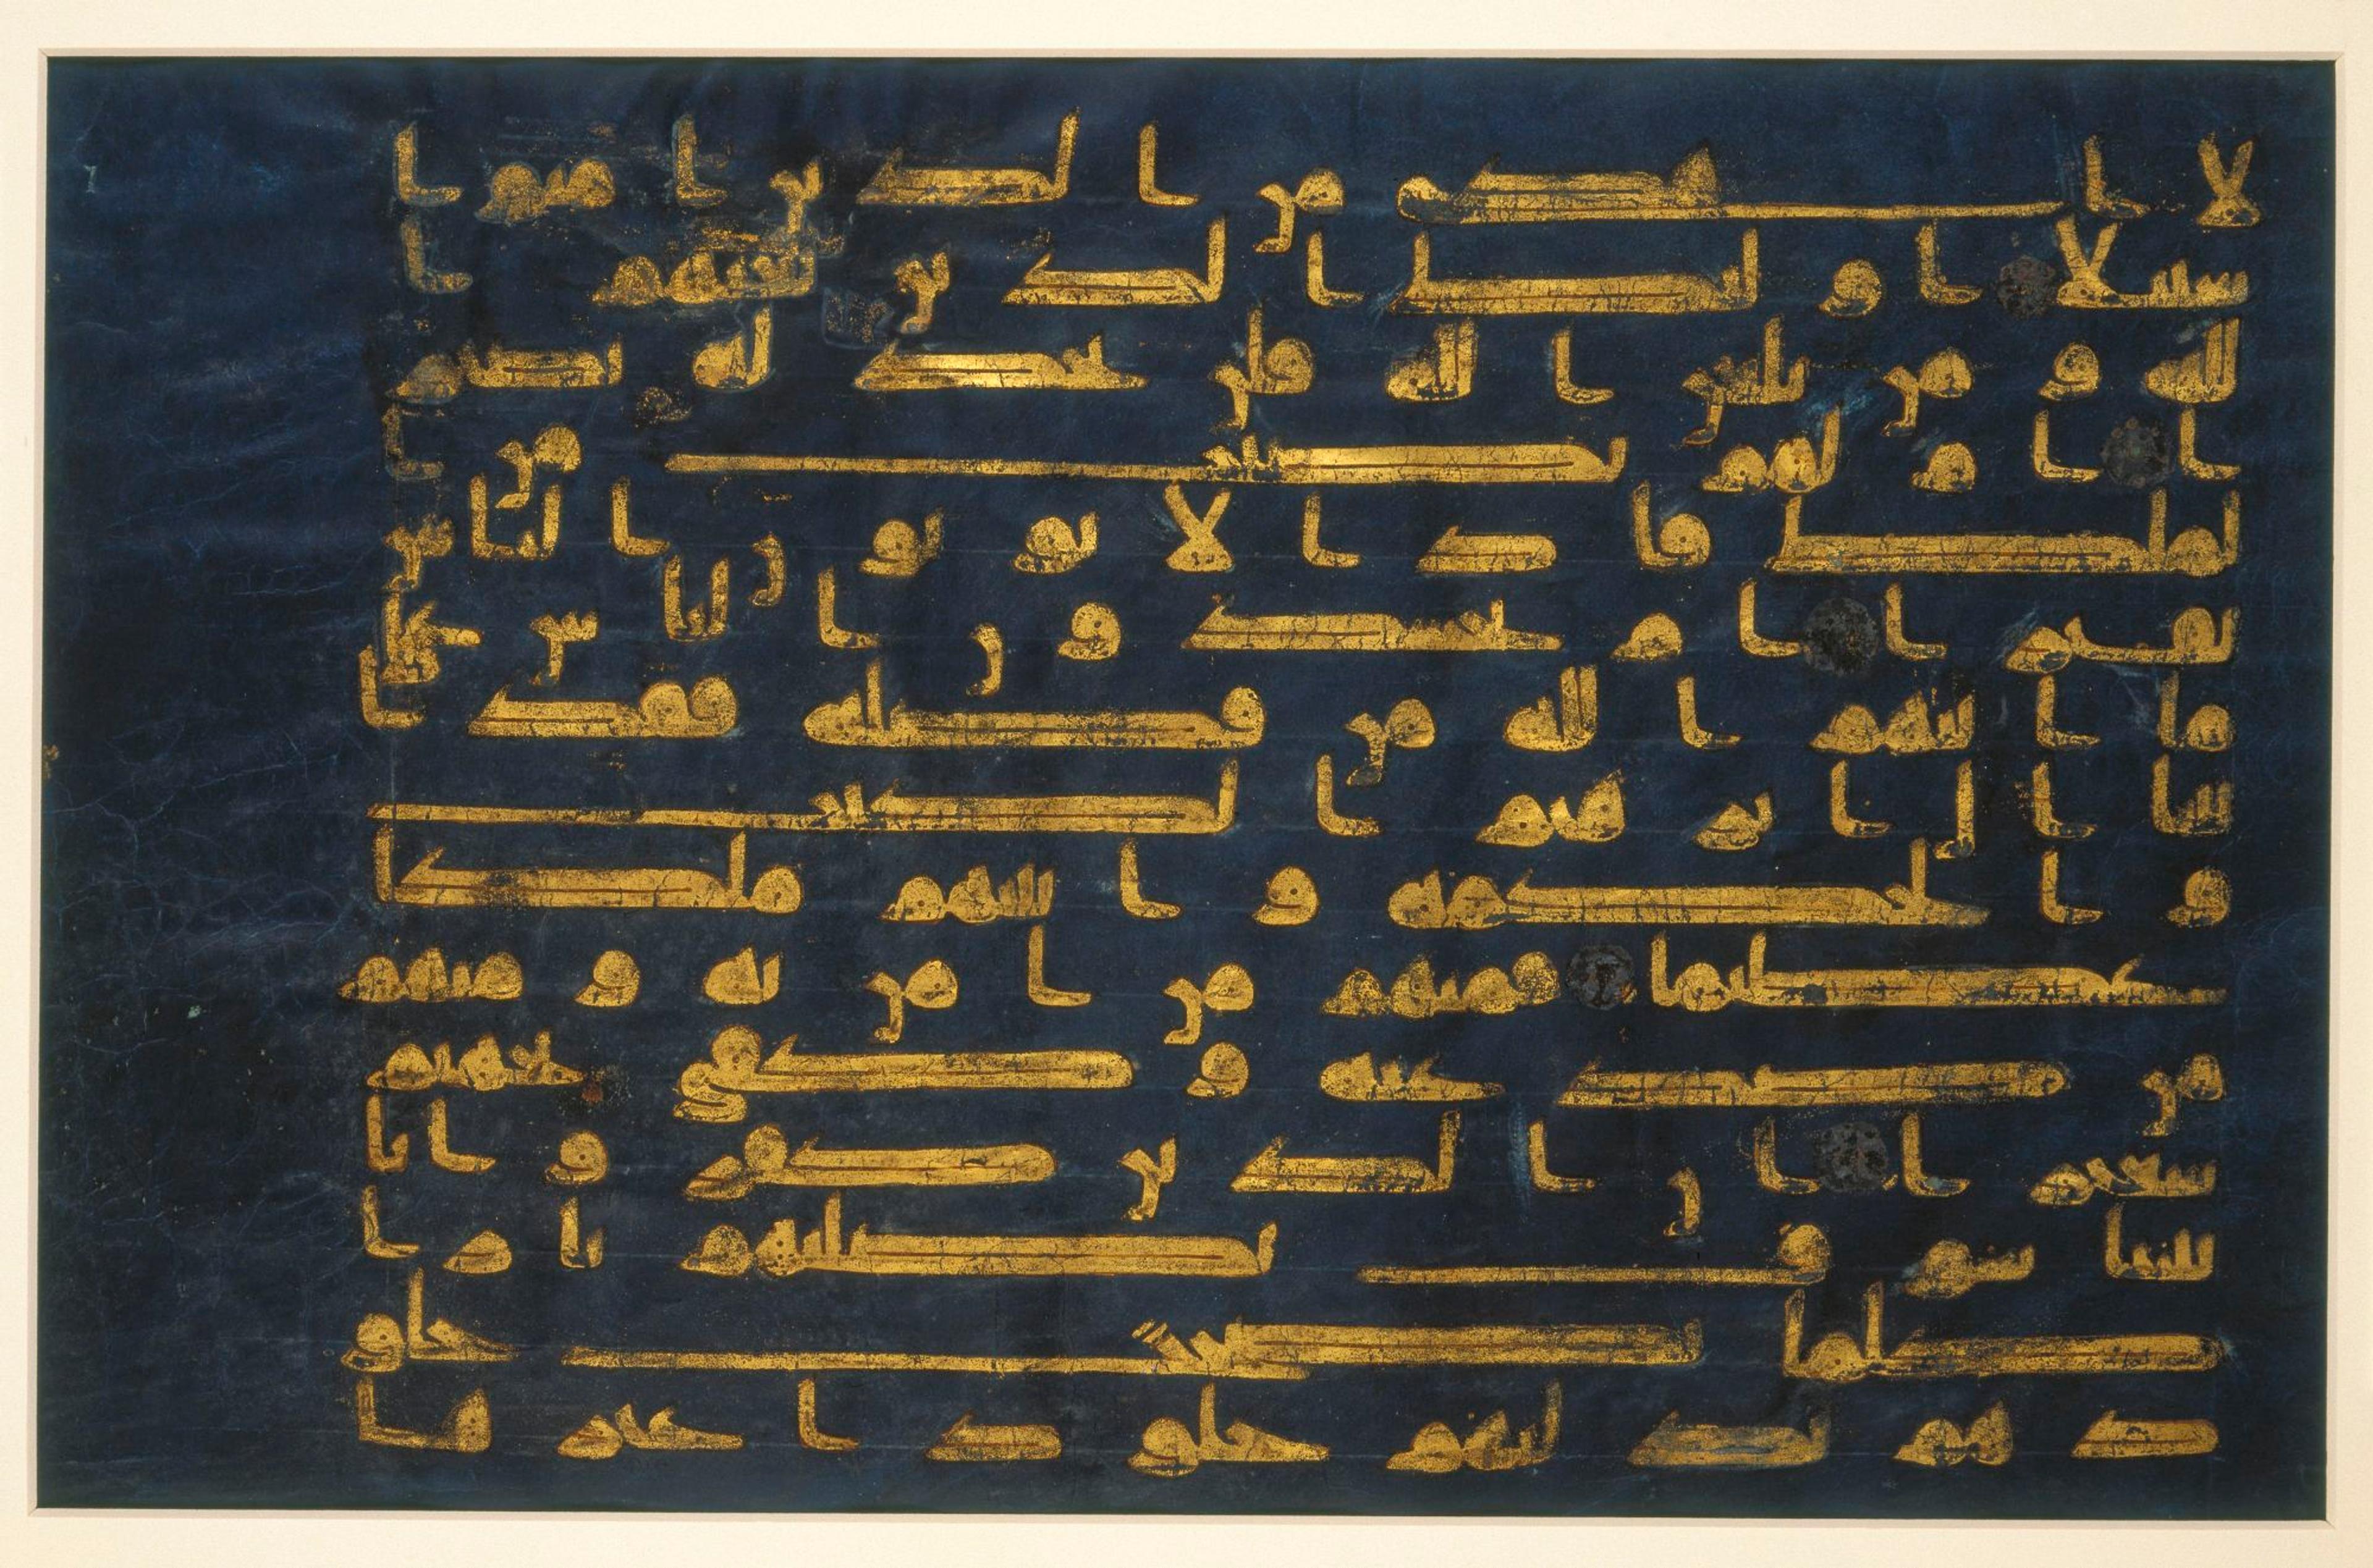 لا اهدى من الذين امنوا
سبيلا اولئك الذين لعنهم ا
لله ومن يلعن الله فلن تجد له نصير
ا ام لهم نصيب من ا
لملك فاذا لا يوتون الناس
نقيرا ام يحسدون الناس على
ما اتيهم الله من فضله فقد ا
تينا ال ابرهيم الكتب
والحكمه واتينهم ملكا
عظيما فمنهم من امن به ومنهم
من صد عنه وكفى بجهنم
سعيرا ان الذين كفروا با
يتنا سوف نصليهم نارا
كلما نضجت جلو
دهم بدلنهم جلودا غيرها